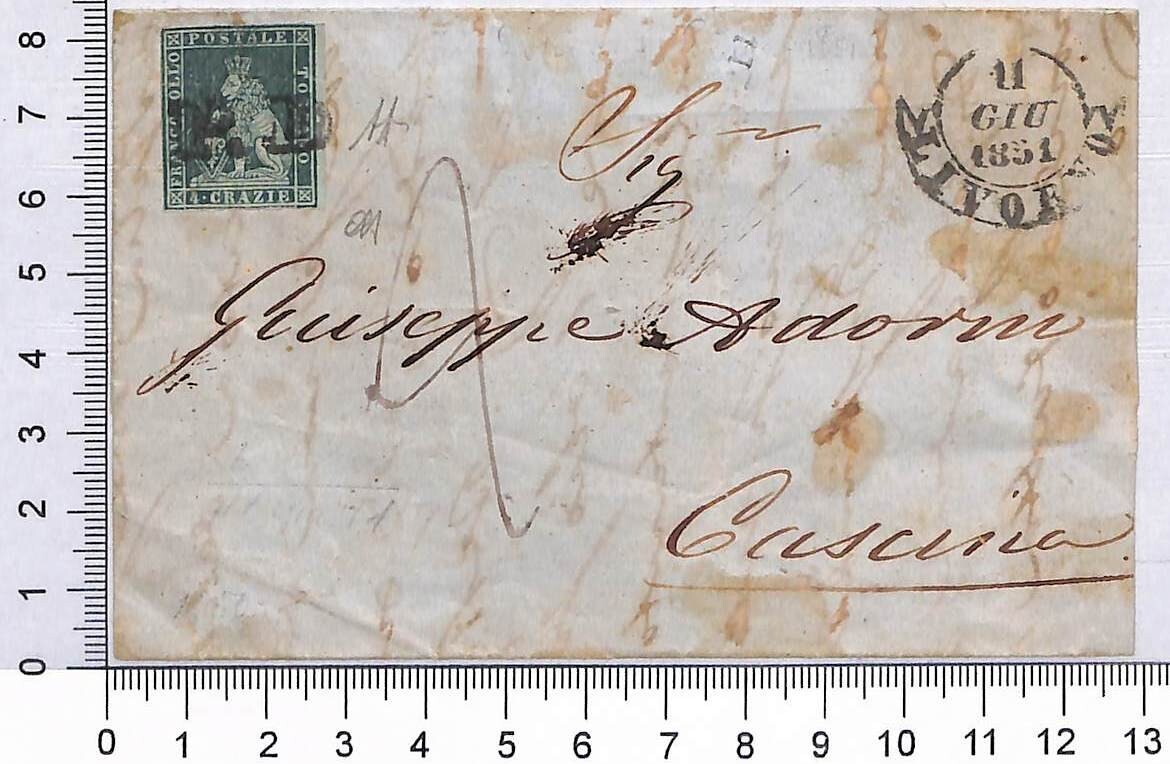 FRANCO BOLLO
POSTALE
TOSCANO
4 · CRAZIE
P.D
11
GIU
1851
Sig
Guiseppe Adorni
Cascina
8
7
6
5
4
3
2
1
0
0 1 2 3 4 5 6 7 8 9 10 11 12 13